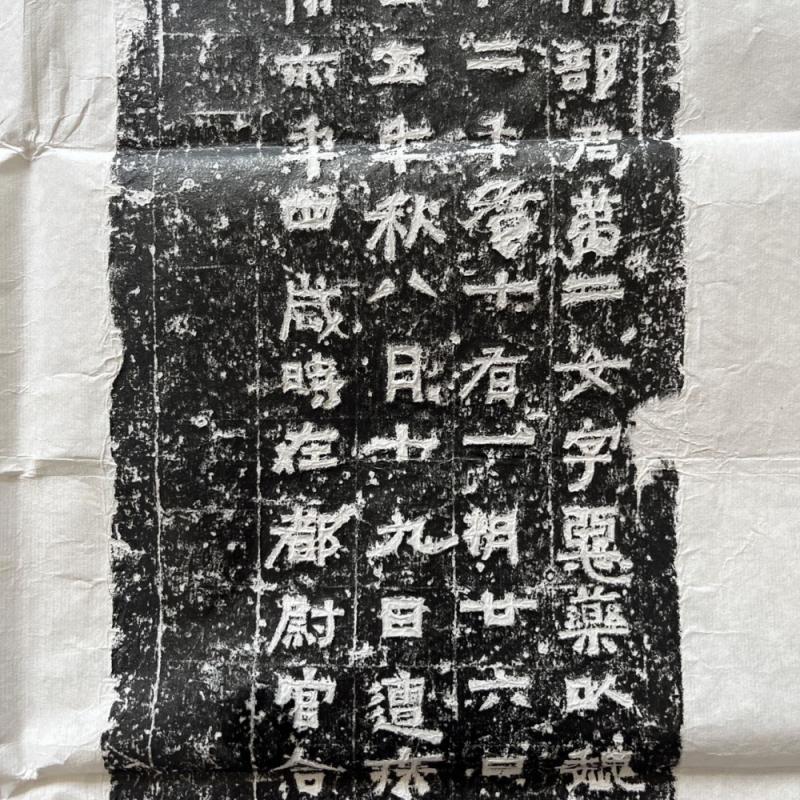 部君第二女字惡藥以魏
二年十有一朔廿六日
五年秋八月十九日遭疾
年四歲時在都尉官舍